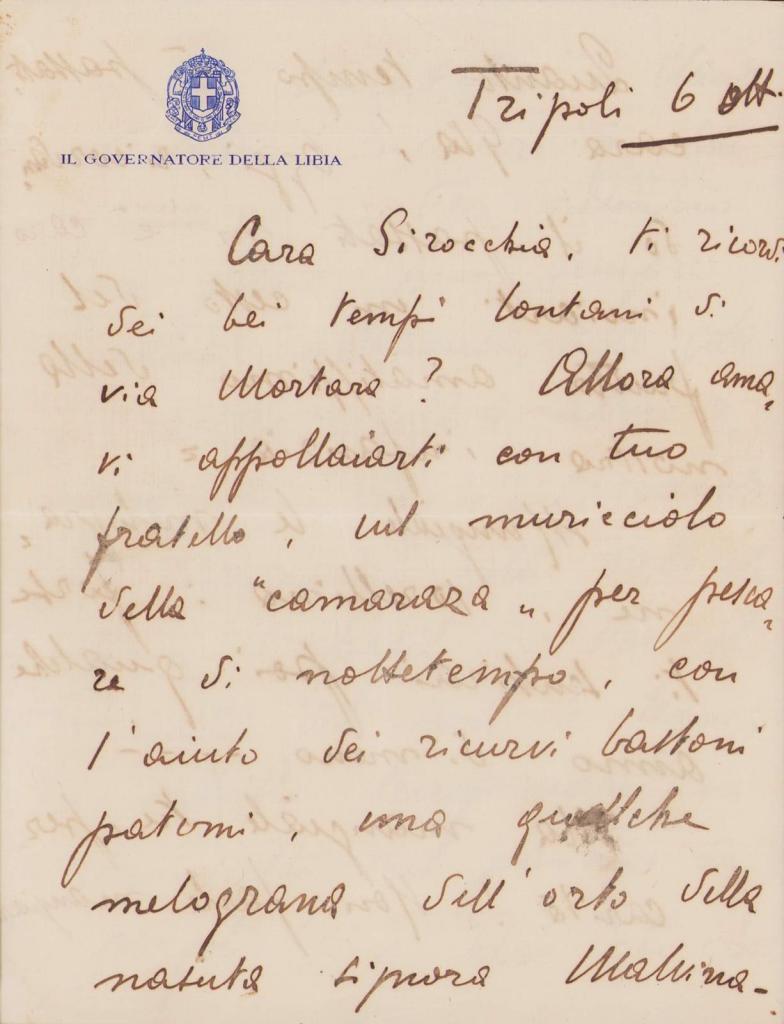 IL GOVERNATORE DELLA LIBIA
Tripoli 6 ott.
Cara Sirocchia, ti ricordi
dei bei tempi lontani di
via Mortara? Allora ama=
vi appollaiarti con tuo
fratello, sul muricciolo
della "camaraza" per pesca=
re di nottetempo, con
l'aiuto dei ricurvi bastoni
paterni, una qualche
melograna dell'orto della
nasuta signora Malvina-